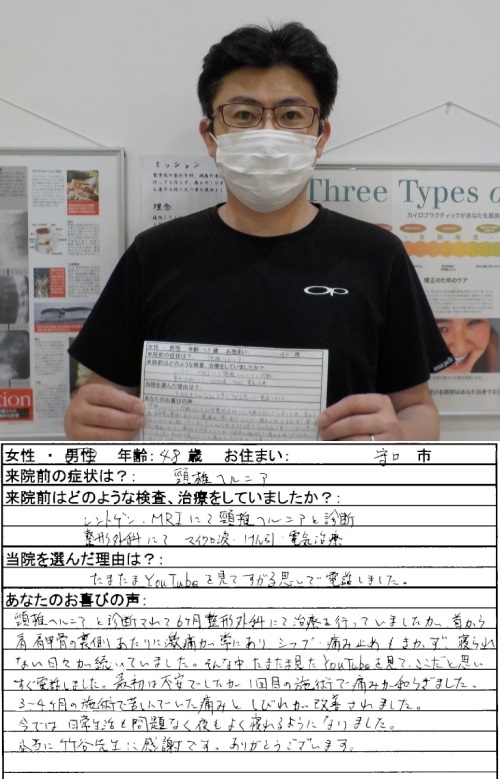 ミッション
理念
Three Types o
カイロプラクティックがあなたを
矯正のためのケア
op
女性・男性 年齢: 48 歳 お住まい: 守口 市
来院前の症状は？: 頸椎ヘルニア
来院前はどのような検査、治療をしていましたか？:
レントゲン、MRIにて頸椎ヘルニアと診断
整形外科にて マイクロ波・けん引・電気治療
当院を選んだ理由は？:
たまたまYouTubeを見てすがる思いで電話しました。
あなたのお喜びの声:
頸椎ヘルニアと診断されて6ヶ月整形外科にて治療を行っていましたが、首から
肩、肩甲骨の裏側あたりに激痛が常にあり シップ・痛み止めもきかず、寝られ
ない日々が続いていました。そんな中たまたま見たYouTubeを見て、ここだと思い
すぐ電話しました。最初は不安でしたが1回目の施術で痛みが和らぎました、
3~4ヶ月の施術で苦しんでいた痛みとしびれが改善されました。
今では日常生活も問題なく夜もよく寝れるようになりました。
本当に竹谷先生に感謝です。ありがとうございます。